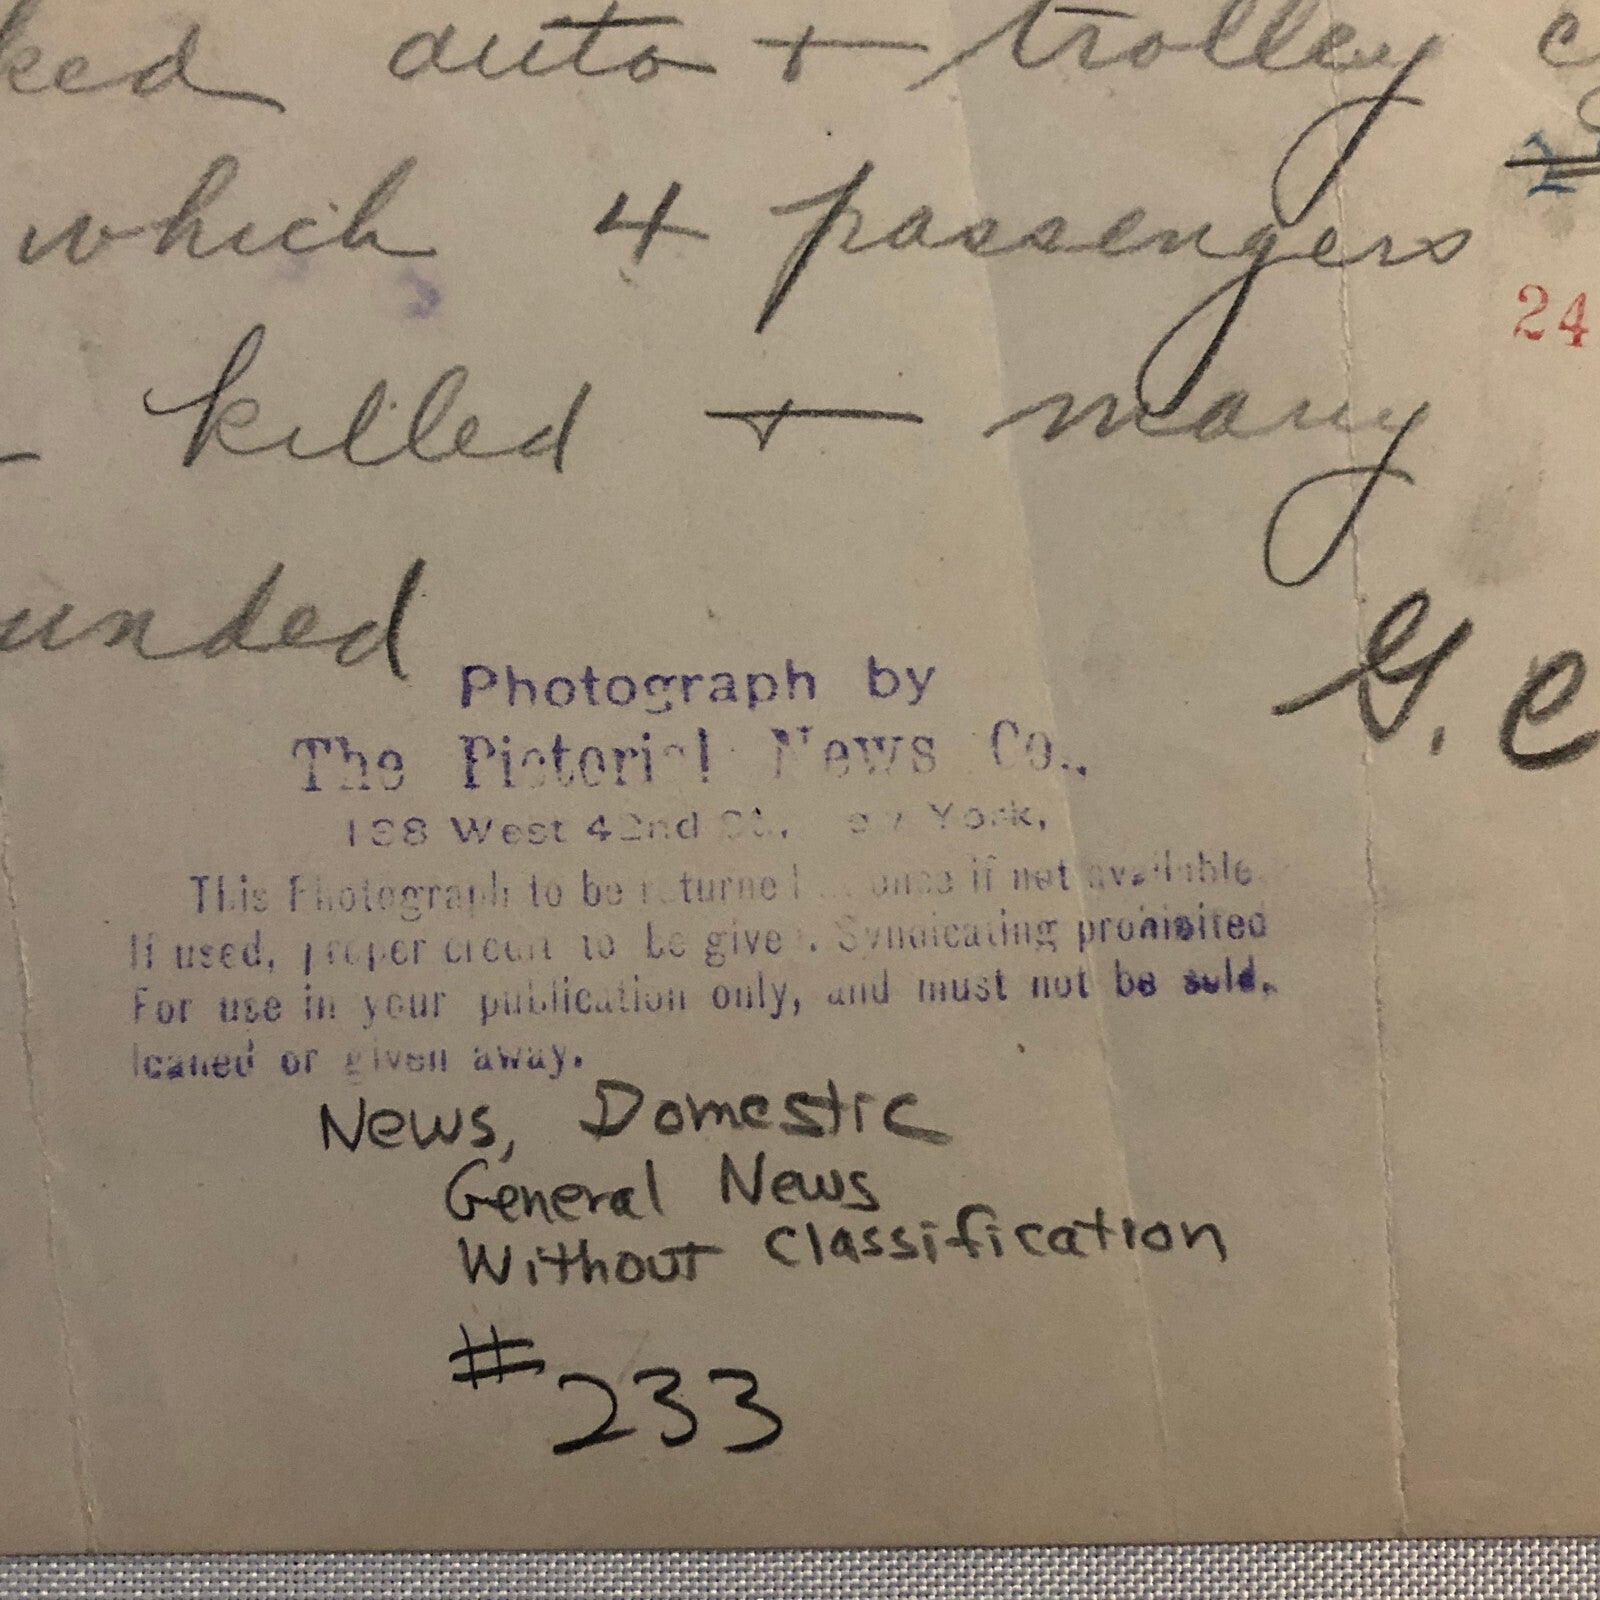 ked auto + trolley c
which 4 passengers
24
killed + many
unded
G. C
Photograph by
The Pictorial News Co.,
138 West 42nd St., New York,
This Photograph to be returned at once if not available.
If used, proper credit to be given. Syndicating prohibited
For use in your publication only, and must not be sold,
loaned or given away.
News, Domestic
General News
Without Classification
#233